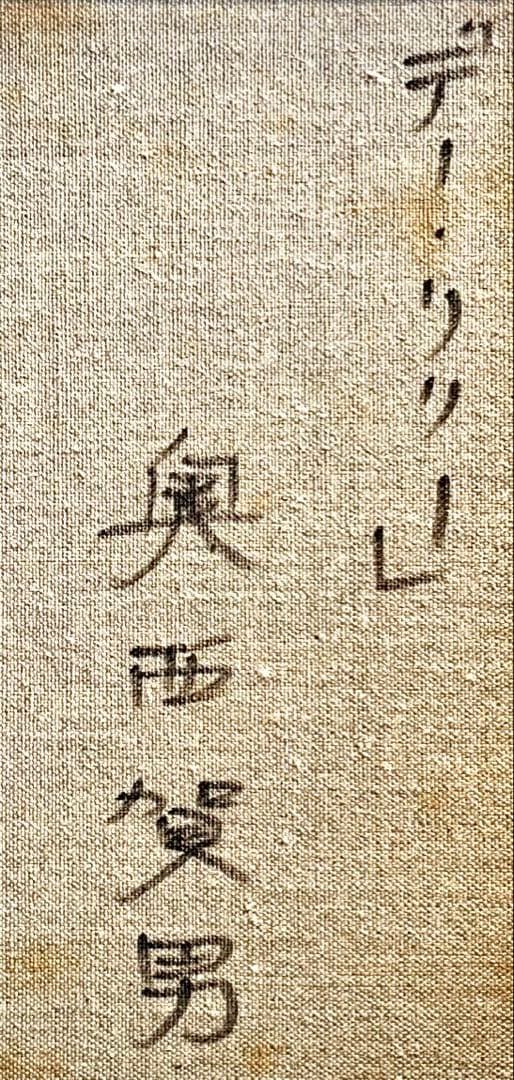 「デー・リリー」
奥西賀男